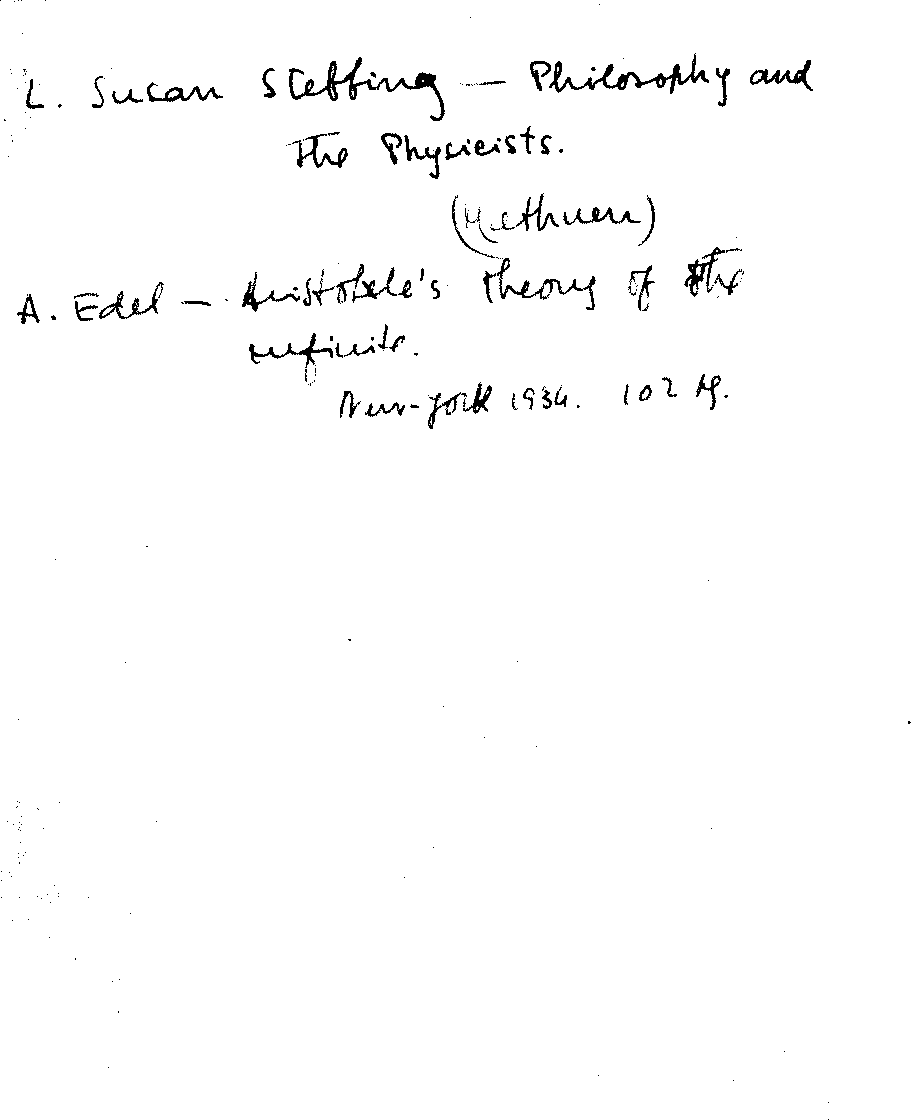 L. Susan Stebbing — Philosophy and
the Physicists.
(Methuen)
A. Edel — Aristotele's theory of the
infinite.
New-York 1934. 102 pg.